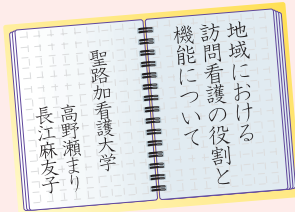 地域における
訪問看護の役割と
機能について
聖路加看護大学
高野瀬まり
長江麻友子